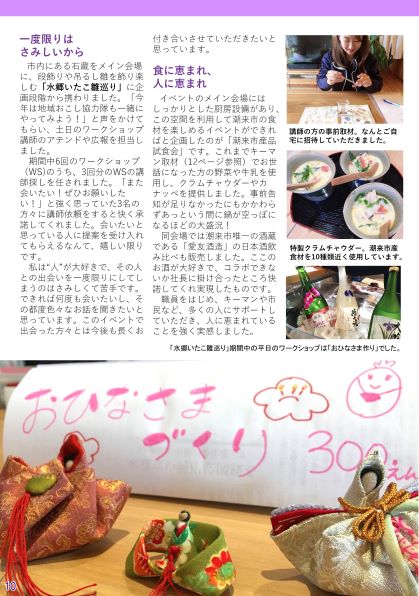 一度限りは
さみしいから
市内にある石蔵をメイン会場
に、段飾りや吊るし雛を飾り楽
しむ「水郷いたこ雛巡り」に企
画段階から携わりました。「今
年は地域おこし協力隊も一緒に
やってみよう！」と声をかけて
もらい、土日のワークショップ
講師のアテンドや広報を担当し
ました。
期間中6回のワークショップ
（WS）のうち、3回分のWSの講
師探しを任されました。「また
会いたい！ぜひお願いした
い！」と強く思っていた3名の
方々に講師依頼をすると快く承
諾してくれました。会いたいと
思っている人に提案を受け入れ
てもらえるなんて、嬉しい限り
です。
私は“人”が大好きで、その人
との出会いを一度限りにしてし
まうのはさみしくて苦手です。
できれば何度も会いたいし、そ
の都度色々なお話を聞きたいと
思っています。このイベントで
出会った方々とは今後も長くお
付き合いさせていただきたいと
思っています。
食に恵まれ、
人に恵まれ
イベントのメイン会場には
しっかりとした厨房設備があり、
この空間を利用して潮来市の食
材を楽しめるイベントができれ
ばと企画したのが「潮来市産品
試食会」です。これまでキーマ
ン取材（12ページ参照）でお世
話になった方の野菜や牛乳を使
用し、クラムチャウダーやカ
ナッペを提供しました。事前告
知が足りなかったにもかかわら
ずあっという間に鍋が空っぽに
なるほどの大盛況！
同会場では潮来市唯一の酒蔵
である「愛友酒造」の日本酒飲
み比べも販売しました。ここの
お酒が大好きで、コラボできな
いか社長に掛け合ったところ快
諾してくれ実現したものです。
職員をはじめ、キーマンや市
民など、多くの人にサポートし
ていただき、人に恵まれている
ことを強く実感しました。
講師の方の事前取材。なんとご自
宅に招待していただきました。
特製クラムチャウダー。潮来市産
食材を10種類近く使用しています。
「水郷いたこ雛巡り」期間中の平日のワークショップは「おひなさま作り」でした。
おひなさま
づくり
300えん
10